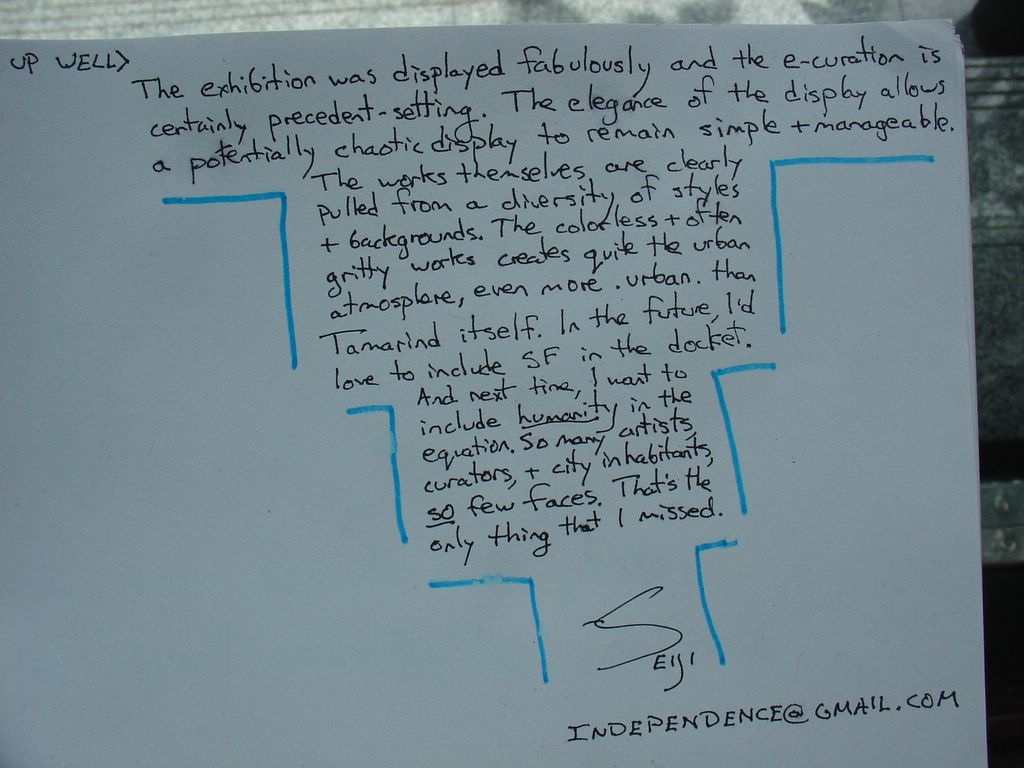 UP WELL>
The exhibition was displayed fabulously and the e-curation is
certainly precedent-setting. The elegance of the display allows
a potentially chaotic display to remain simple + manageable.
The works themselves, are clearly
pulled from a diversity of styles
+ backgrounds. The colorless + often
gritty works creates quite the urban
atmosphere, even more .urban. than
Tamarind itself. In the future, I'd
love to include SF in the docket.
And next time, I want to
include humanity in the
equation. So many artists,
curators, + city inhabitants,
so few faces. That's the
only thing that I missed.
SEIJI
INDEPENDENCE@GMAIL.COM